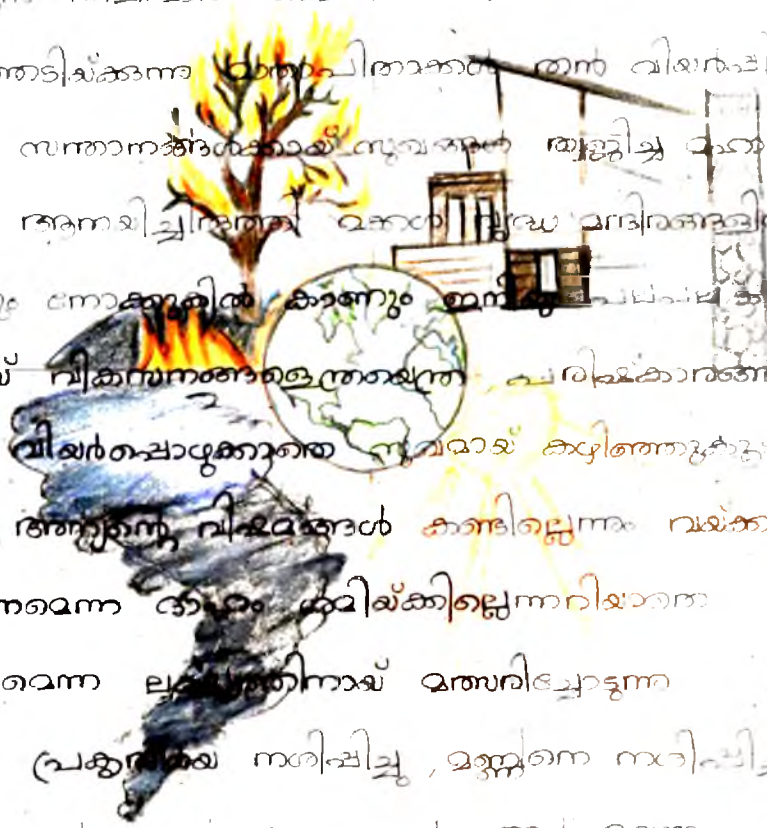 ത്തടിയ്ക്കുന്ന മാതാപിതാക്കൾ തൻ വിയർപ്പി
സന്താനങ്ങൾക്കായ് സുഖങ്ങൾ ത്യജിച്ച മഹാ
ആനയിച്ചിരുത്തി മക്കൾ വൃദ്ധ മന്ദിരങ്ങളിൽ
നോക്കുകിൽ കാണും ഇനിയും പലപല
വികസനങ്ങളെന്തയെന്ത്ര പരിഷ്കാരങ്ങ
വിയർപ്പൊഴുക്കാതെ സുഖമായ് കഴിഞ്ഞുകൂ
അന്യന്റെ വിഷമങ്ങൾ കണ്ടില്ലെന്നും വയ്ക്കാ
നമെന്ന ദാഹം ശമിയ്ക്കില്ലെന്നറിയാതെ
മെന്ന ലക്ഷ്യത്തിനായ് മത്സരിച്ചോടുന്ന
പ്രകൃതിയെ നശിപ്പിച്ചു , മണ്ണിനെ നശിപ്പിച്